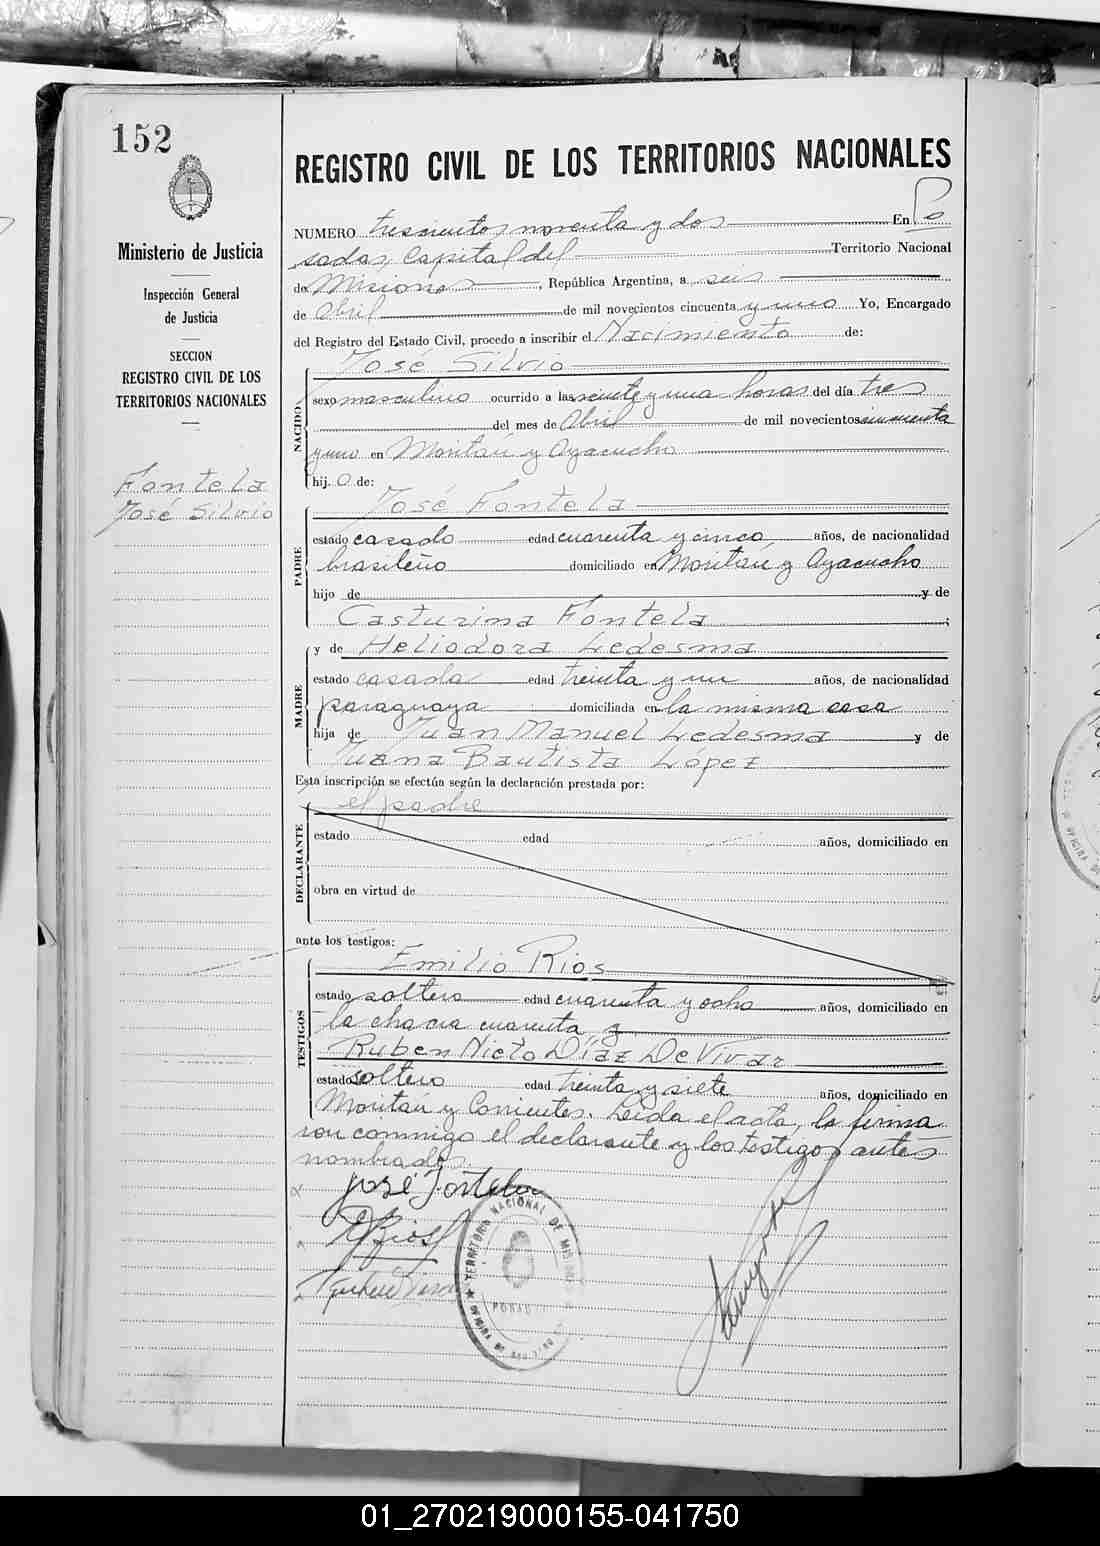 152
Ministerio de Justicia
Inspección General
de Justicia
SECCION
REGISTRO CIVIL DE LOS
TERRITORIOS NACIONALES
Fontela
José Silvio
REGISTRO CIVIL DE LOS TERRITORIOS NACIONALES
NUMERO trescientos noventa y dos En Po
sadas, Capital del Territorio Nacional
de Misiones, República Argentina, a seis
de Abril de mil novecientos cincuenta y uno Yo, Encargado
del Registro del Estado Civil, procedo a inscribir el Nacimiento de:
NACIDO
José Silvio
sexo masculino ocurrido a las veinte y una horas del día tres
del mes de Abril de mil novecientos cincuenta
y uno en Moritán y Ayacucho
hij.o de:
PADRE
José Fontela
estado casado edad cuarenta y cinco años, de nacionalidad
brasileño domiciliado en Moritán y Ayacucho
hijo de y de
Casturina Fontela ;
MADRE
y de Heliodora Ledesma
estado casada edad treinta y un años, de nacionalidad
paraguaya domiciliada en la misma casa
hija de Juan Manuel Ledesma y de
Juana Bautista López
Esta inscripción se efectúa según la declaración prestada por:
DECLARANTE
el padre
estado edad años, domiciliado en
obra en virtud de
ante los testigos:
TESTIGOS
Emilio Rios
estado soltero edad cuarenta y ocho años, domiciliado en
la chacra cuarenta y
Ruben Nieto Díaz De Vivar
estado soltero edad treinta y siete años, domiciliado en
Moritán y Corrientes. Leída el acta, la firma
ron conmigo el declarante y los testigos antes
nombrados.
José Fontela
ERios
TERRITORIO NACIONAL DE MISIONES
POSADAS
01_270219000155-041750